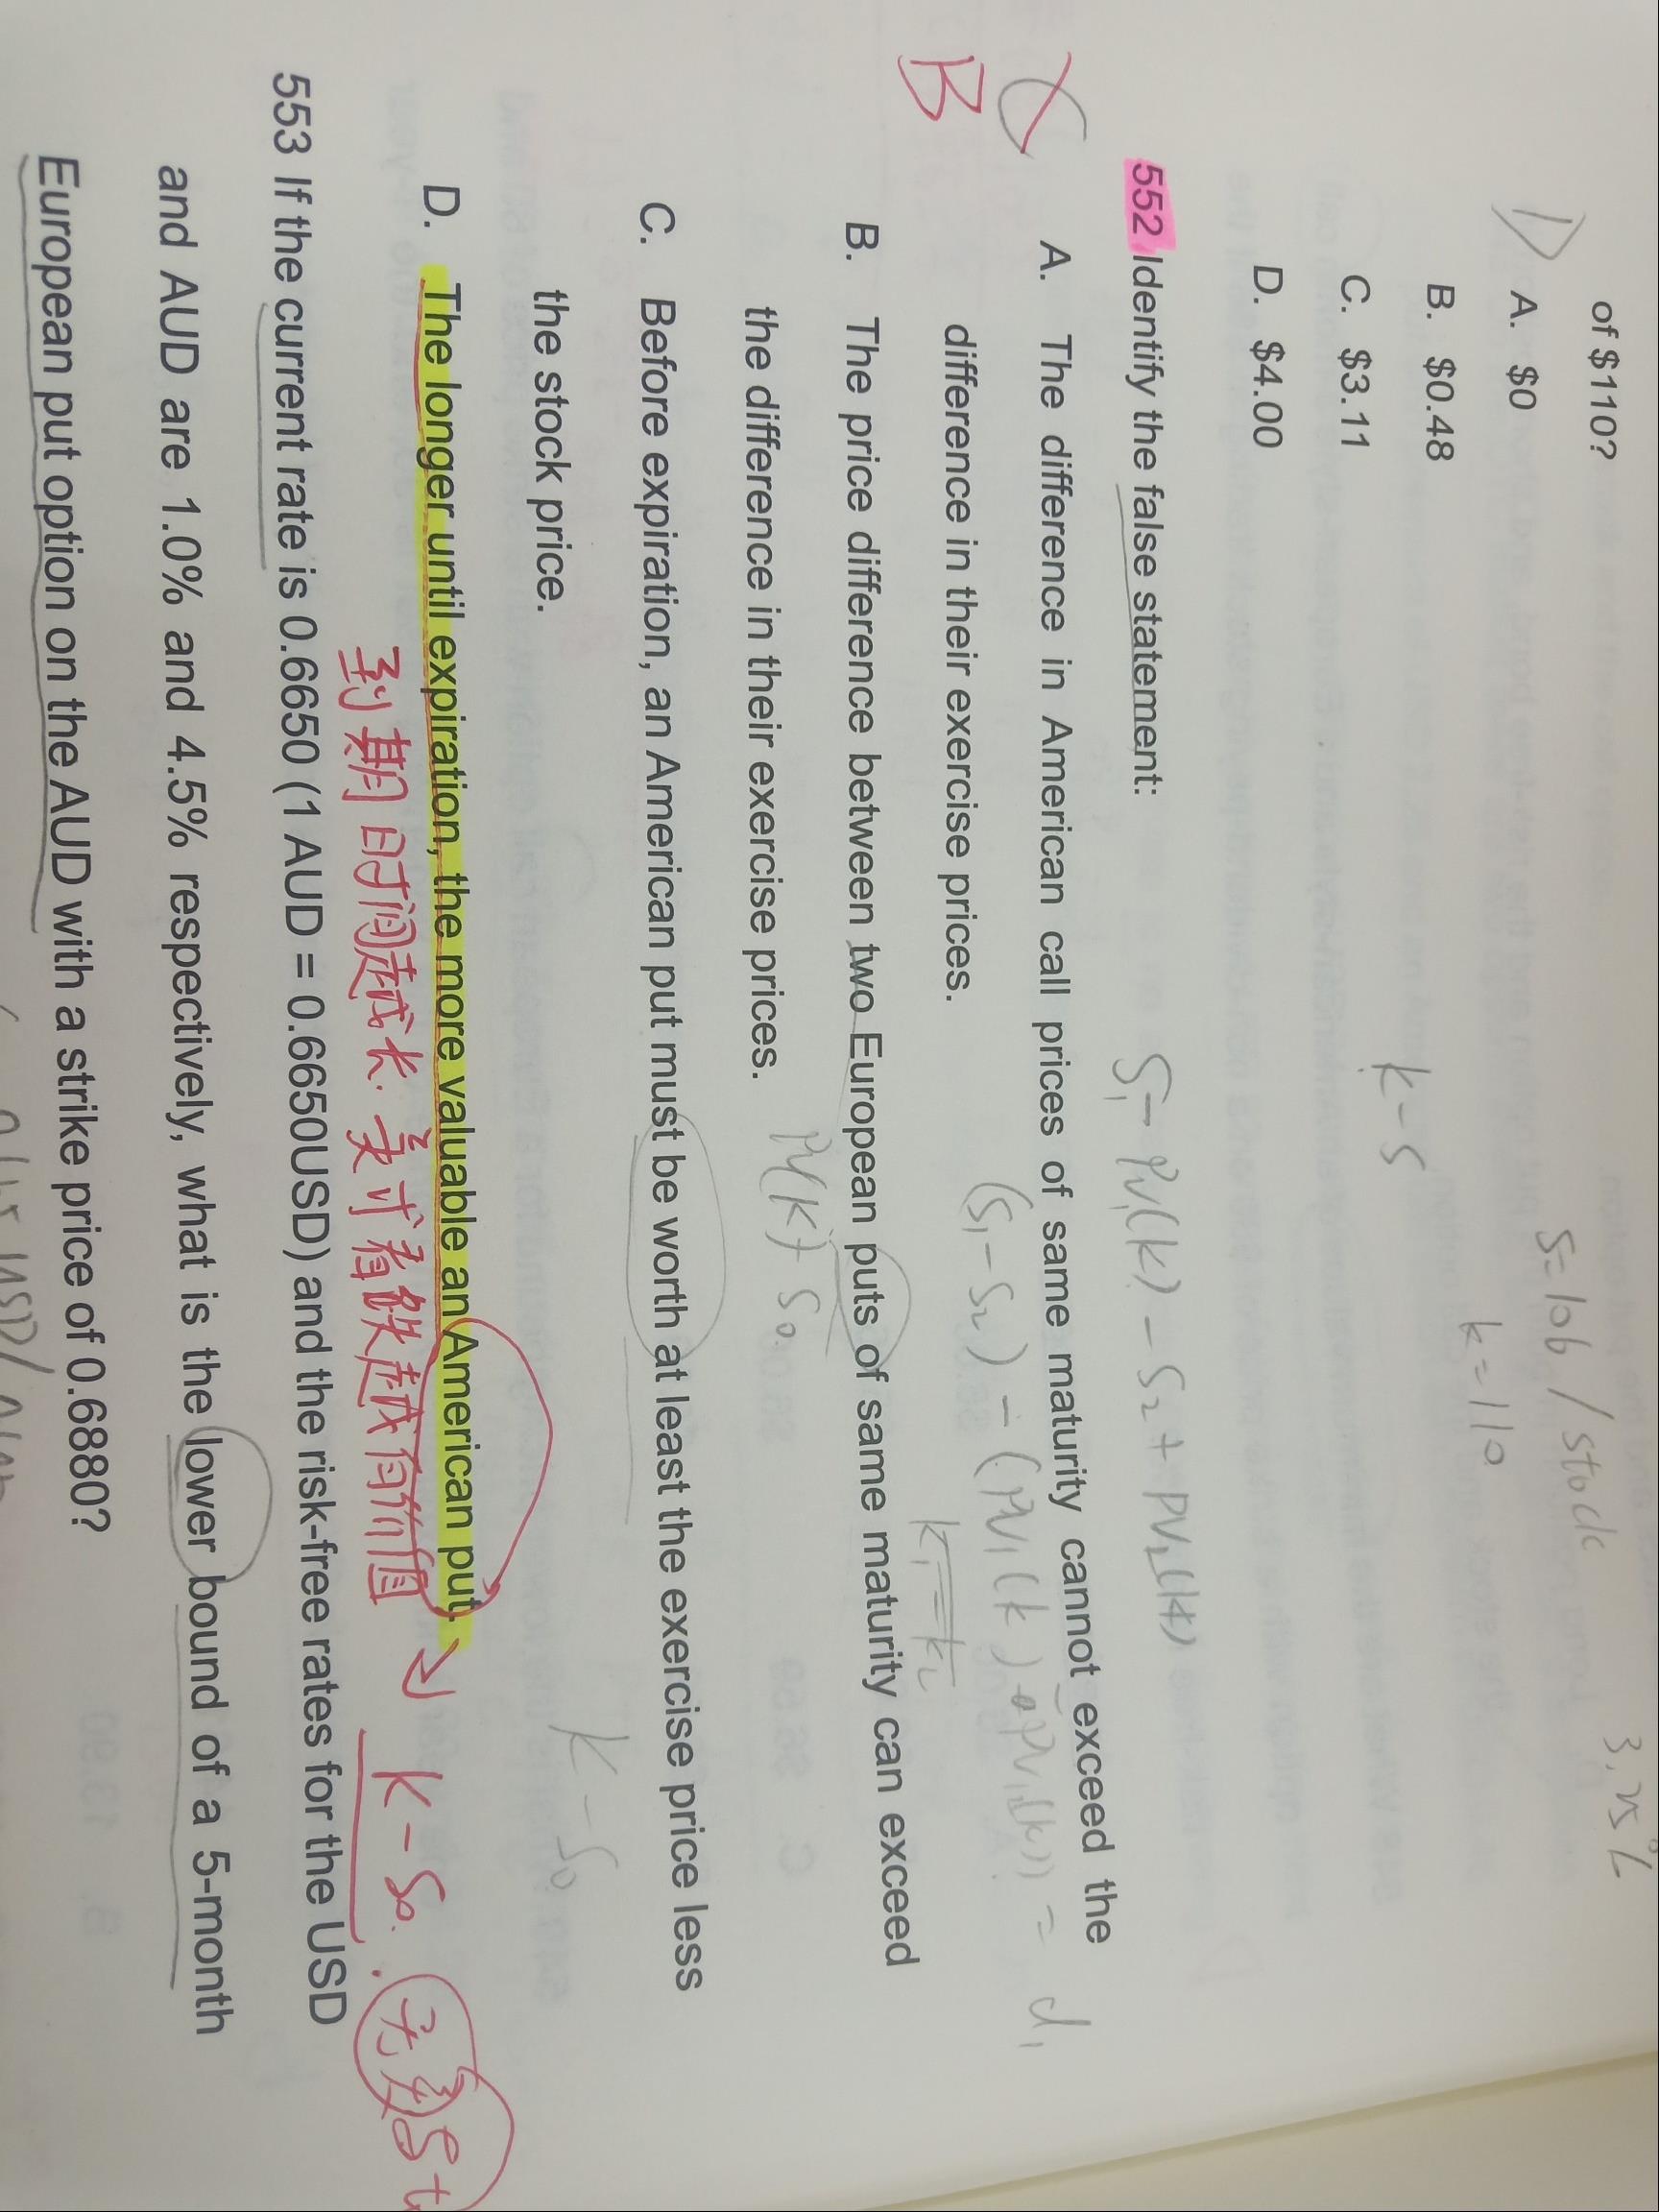 3.25%
S=106 / stock
of $110?
k=110
A. $0
B. $0.48
k-S
C. $3.11
D. $4.00
552 Identify the false statement:
S₁- PV₁(k) - S₂ + PV₂(k)
A. The difference in American call prices of same maturity cannot exceed the
(S₁-S₂) -
difference in their exercise prices.
k₁=k₂
B
B. The price difference between two European puts of same maturity can exceed
the difference in their exercise prices.
PV(k)-S₀
C. Before expiration, an American put must be worth at least the exercise price less
the stock price.
K-S₀
D. The longer until expiration, the more valuable an American put.
到期日时间越长. 美式看跌越有价值
K-S₀.
553 If the current rate is 0.6650 (1 AUD = 0.6650USD) and the risk-free rates for the USD
and AUD are 1.0% and 4.5% respectively, what is the lower bound of a 5-month
European put option on the AUD with a strike price of 0.6880?